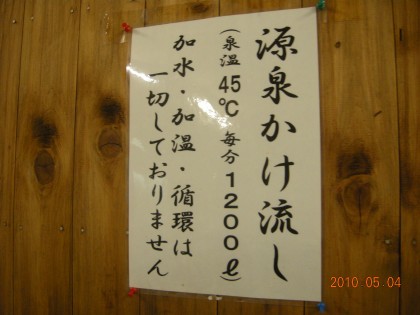 源泉かけ流し
(泉温45℃ 毎分1200ℓ)
加水・加温・循環は
一切しておりません
2010 05 04